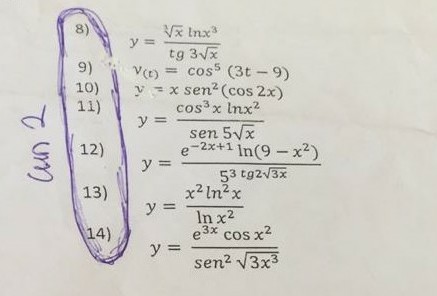 8) y = ∛x lnx³ / tg 3√x
9) v(t) = cos⁵ (3t − 9)
10) y = x sen² (cos 2x)
11) y = cos³x lnx² / sen 5√x
12) y = e⁻²ˣ⁺¹ ln(9 − x²) / 5³ tg2√3x
13) y = x² ln² x / ln x²
14) y = e³ˣ cos x² / sen² √3x³